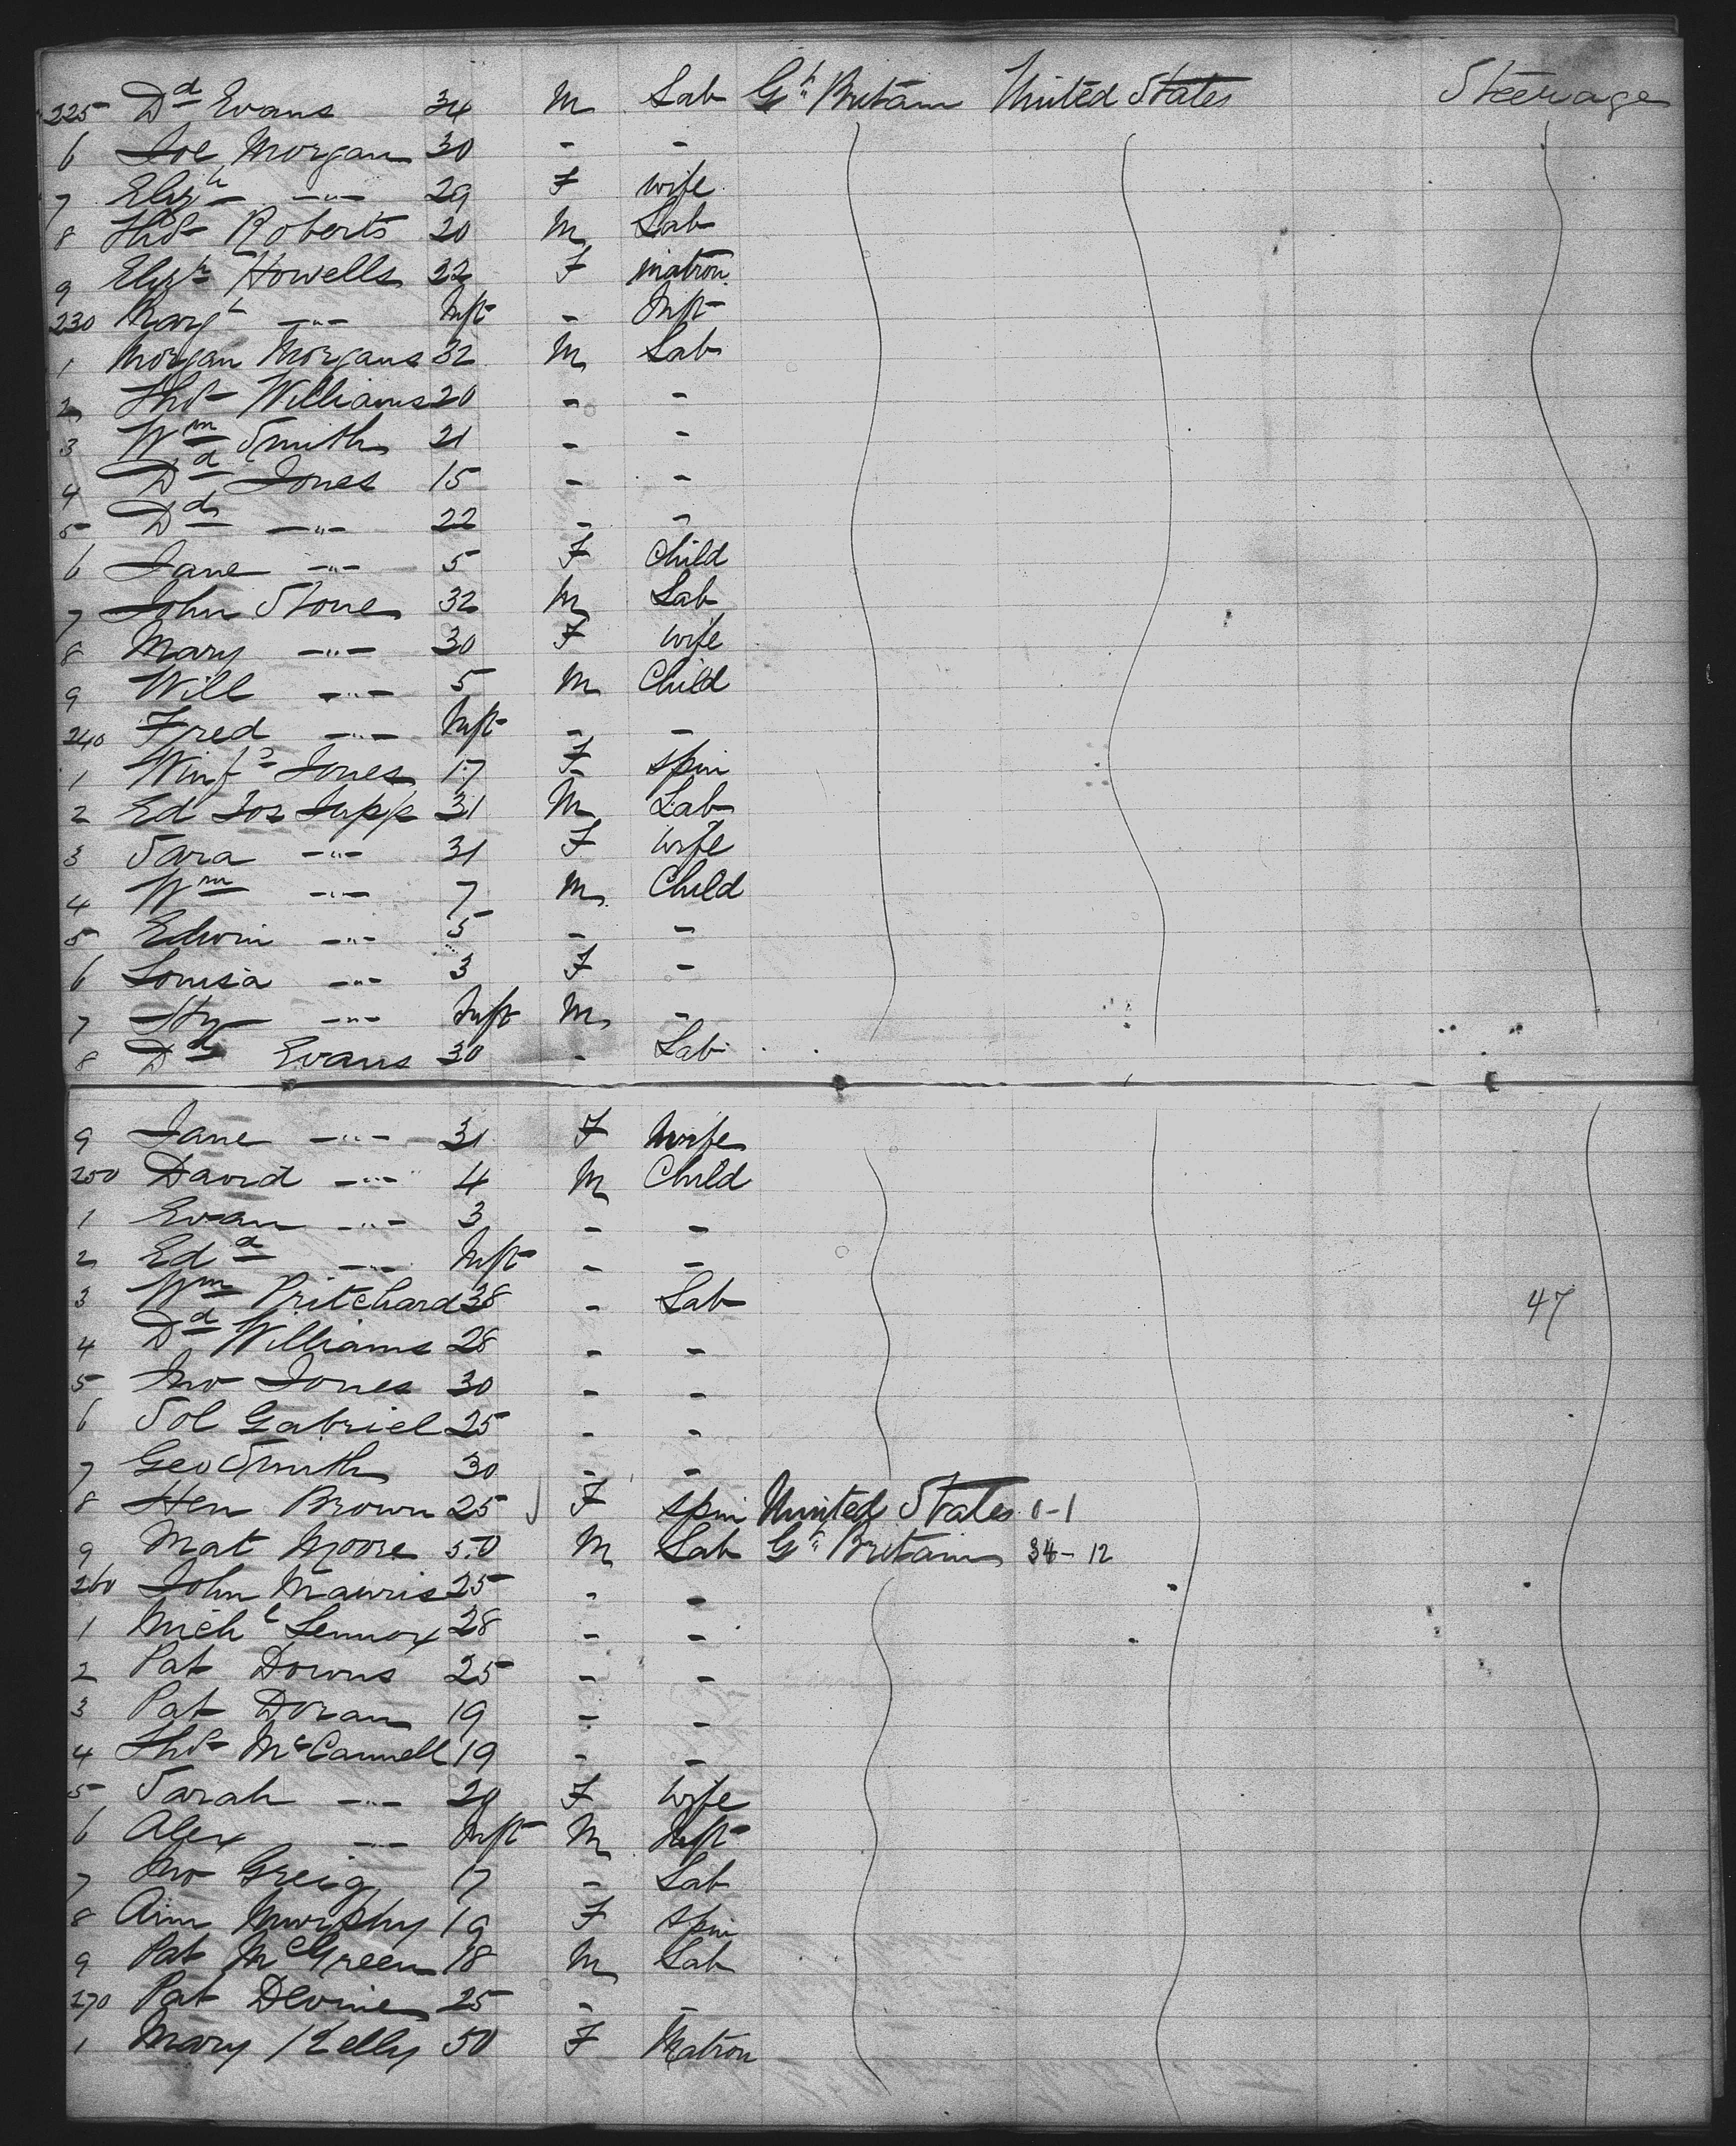 225 Dd Evans 34 M Lab Gt Britain United States Steerage
6 Joe Morgan 30 - -
7 Elizh -"- 29 F wife
8 Thos Roberts 20 M Lab
9 Elizh Howells 22 F matron
230 Margt -"- Inft - Inft
1 Morgan Morgans 32 M Lab
2 Thos Williams 20 - -
3 Wm Smith 21 - -
4 Dd Jones 15 - -
5 Dd -"- 22 - -
6 Jane -"- 5 F Child
7 John Stone 32 M Lab
8 Mary -"- 30 F wife
9 Will -"- 5 M Child
240 Fred -"- Inft - -
1 Winfd Jones 17 F spin
2 Ed Jos Jupp 31 M Lab
3 Sara -"- 31 F wife
4 Wm -"- 7 M Child
5 Edwin -"- 5 - -
6 Louisa -"- 3 F -
7 Hy -"- Inft M -
8 Dd Evans 30 - Lab
9 Jane -"- 31 F wife
250 David -"- 4 M Child
1 Evan -"- 3 - -
2 Edd -"- Inft - -
3 Wm Pritchard 38 - Lab 47
4 Dd Williams 28 - -
5 Jno Jones 30 - -
6 Sol Gabriel 25 - -
7 Geo Smith 30 - -
8 Hen Brown 25 F spin United States 0-1
9 Mat Moore 50 M Lab Gt Britain 34-12
260 John Mawris 25 - -
1 Michl Lennox 28 - -
2 Pat Downs 25 - -
3 Pat Doran 19 - -
4 Thos McCannell 19 - -
5 Sarah -"- 29 F wife
6 Alex -"- Inft M Inft
7 Jno Greig 17 - Lab
8 Ann Murphy 19 F spin
9 Pat McGreen 18 M Lab
270 Pat Devine 25 - -
1 Mary Kelly 50 F Matron